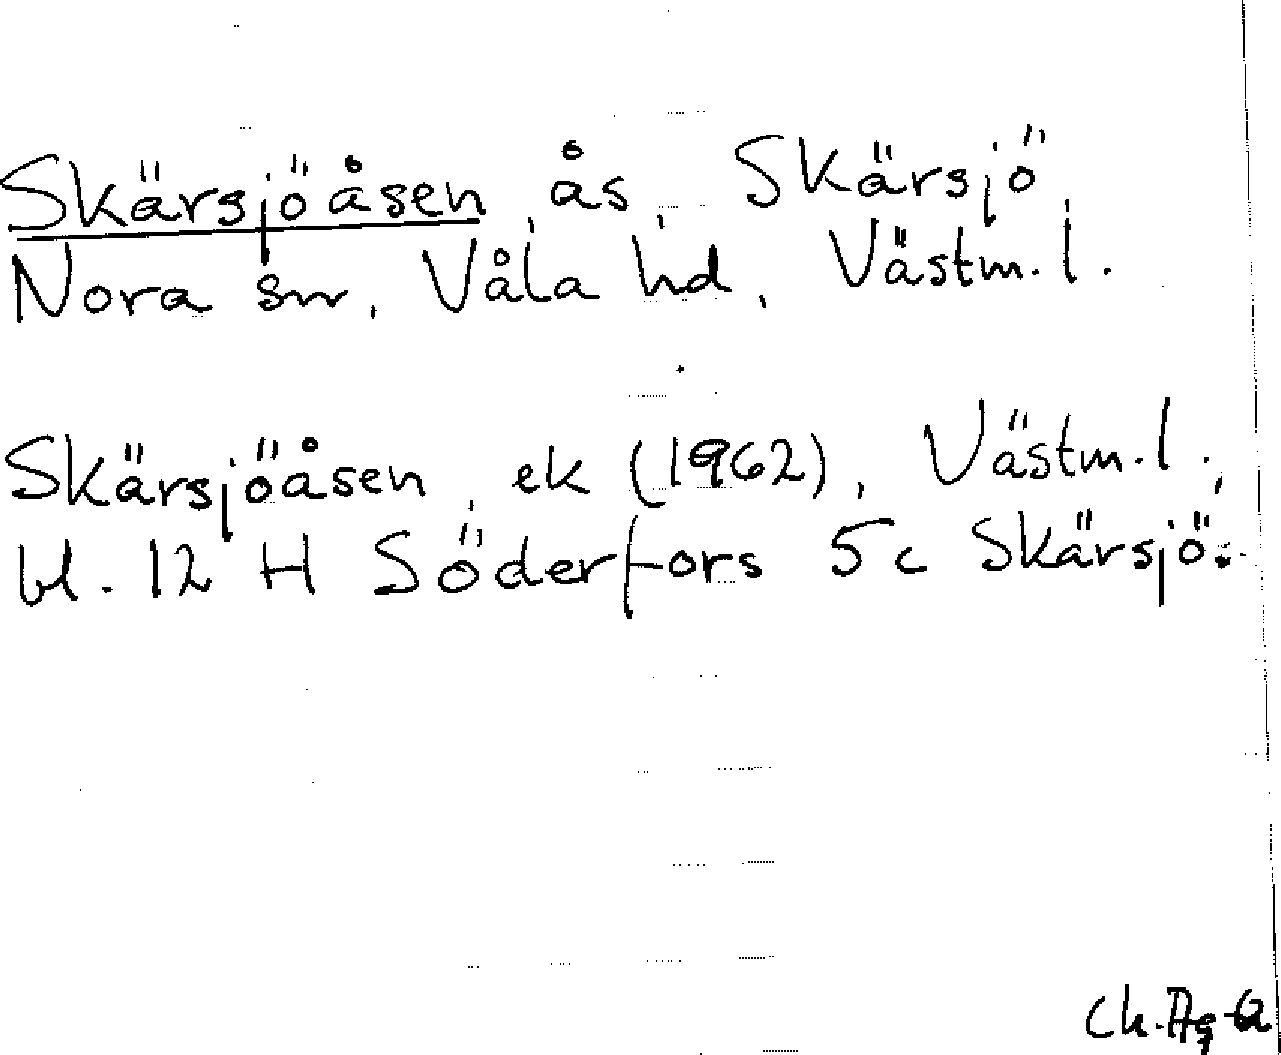 Skärsjöåsen, ås, Skärsjö,
Nora sn, Våla hd, Västm. l.
Skärsjöåsen, ek (1962), Västm. l.,
bl. 12 H Söderfors 5c Skärsjö.
Ch.